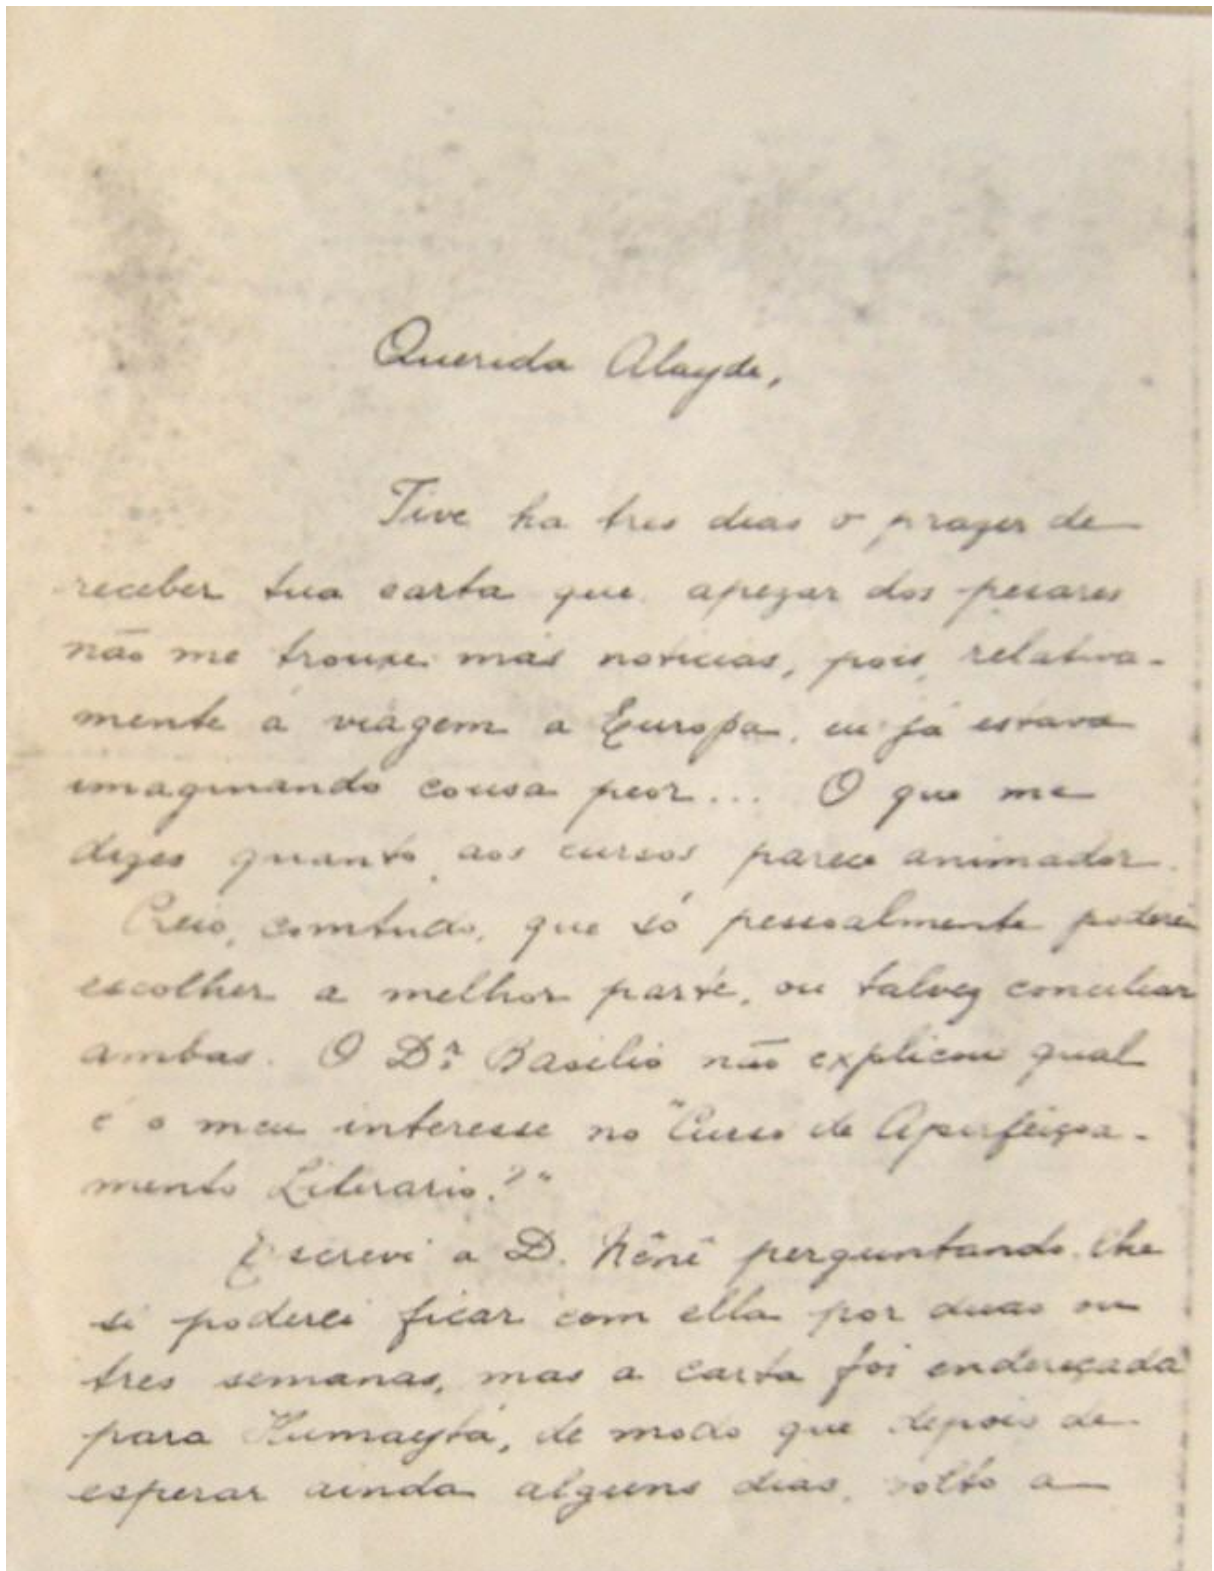 Querida Alayde,
Tive ha tres dias o prazer de
receber tua carta que, apezar dos pesares
não me trouxe más noticias, pois, relativa-
mente a viagem a Europa, eu já estava
imaginando cousa peor... O que me
dizes quanto aos cursos parece animador.
Creio, comtudo, que só pessoalmente poderei
escolher a melhor parte, ou talvez conciliar
ambas. O Dr. Basilio não explicou qual
é o meu interesse no "Curso de Aperfeiçoa-
mento Literario?"
Escrevi a D. Nênê perguntando-lhe
si poderei ficar com ella por duas ou
tres semanas, mas a carta foi endereçada
para Humaytá, de modo que depois de
esperar ainda alguns dias, volto a